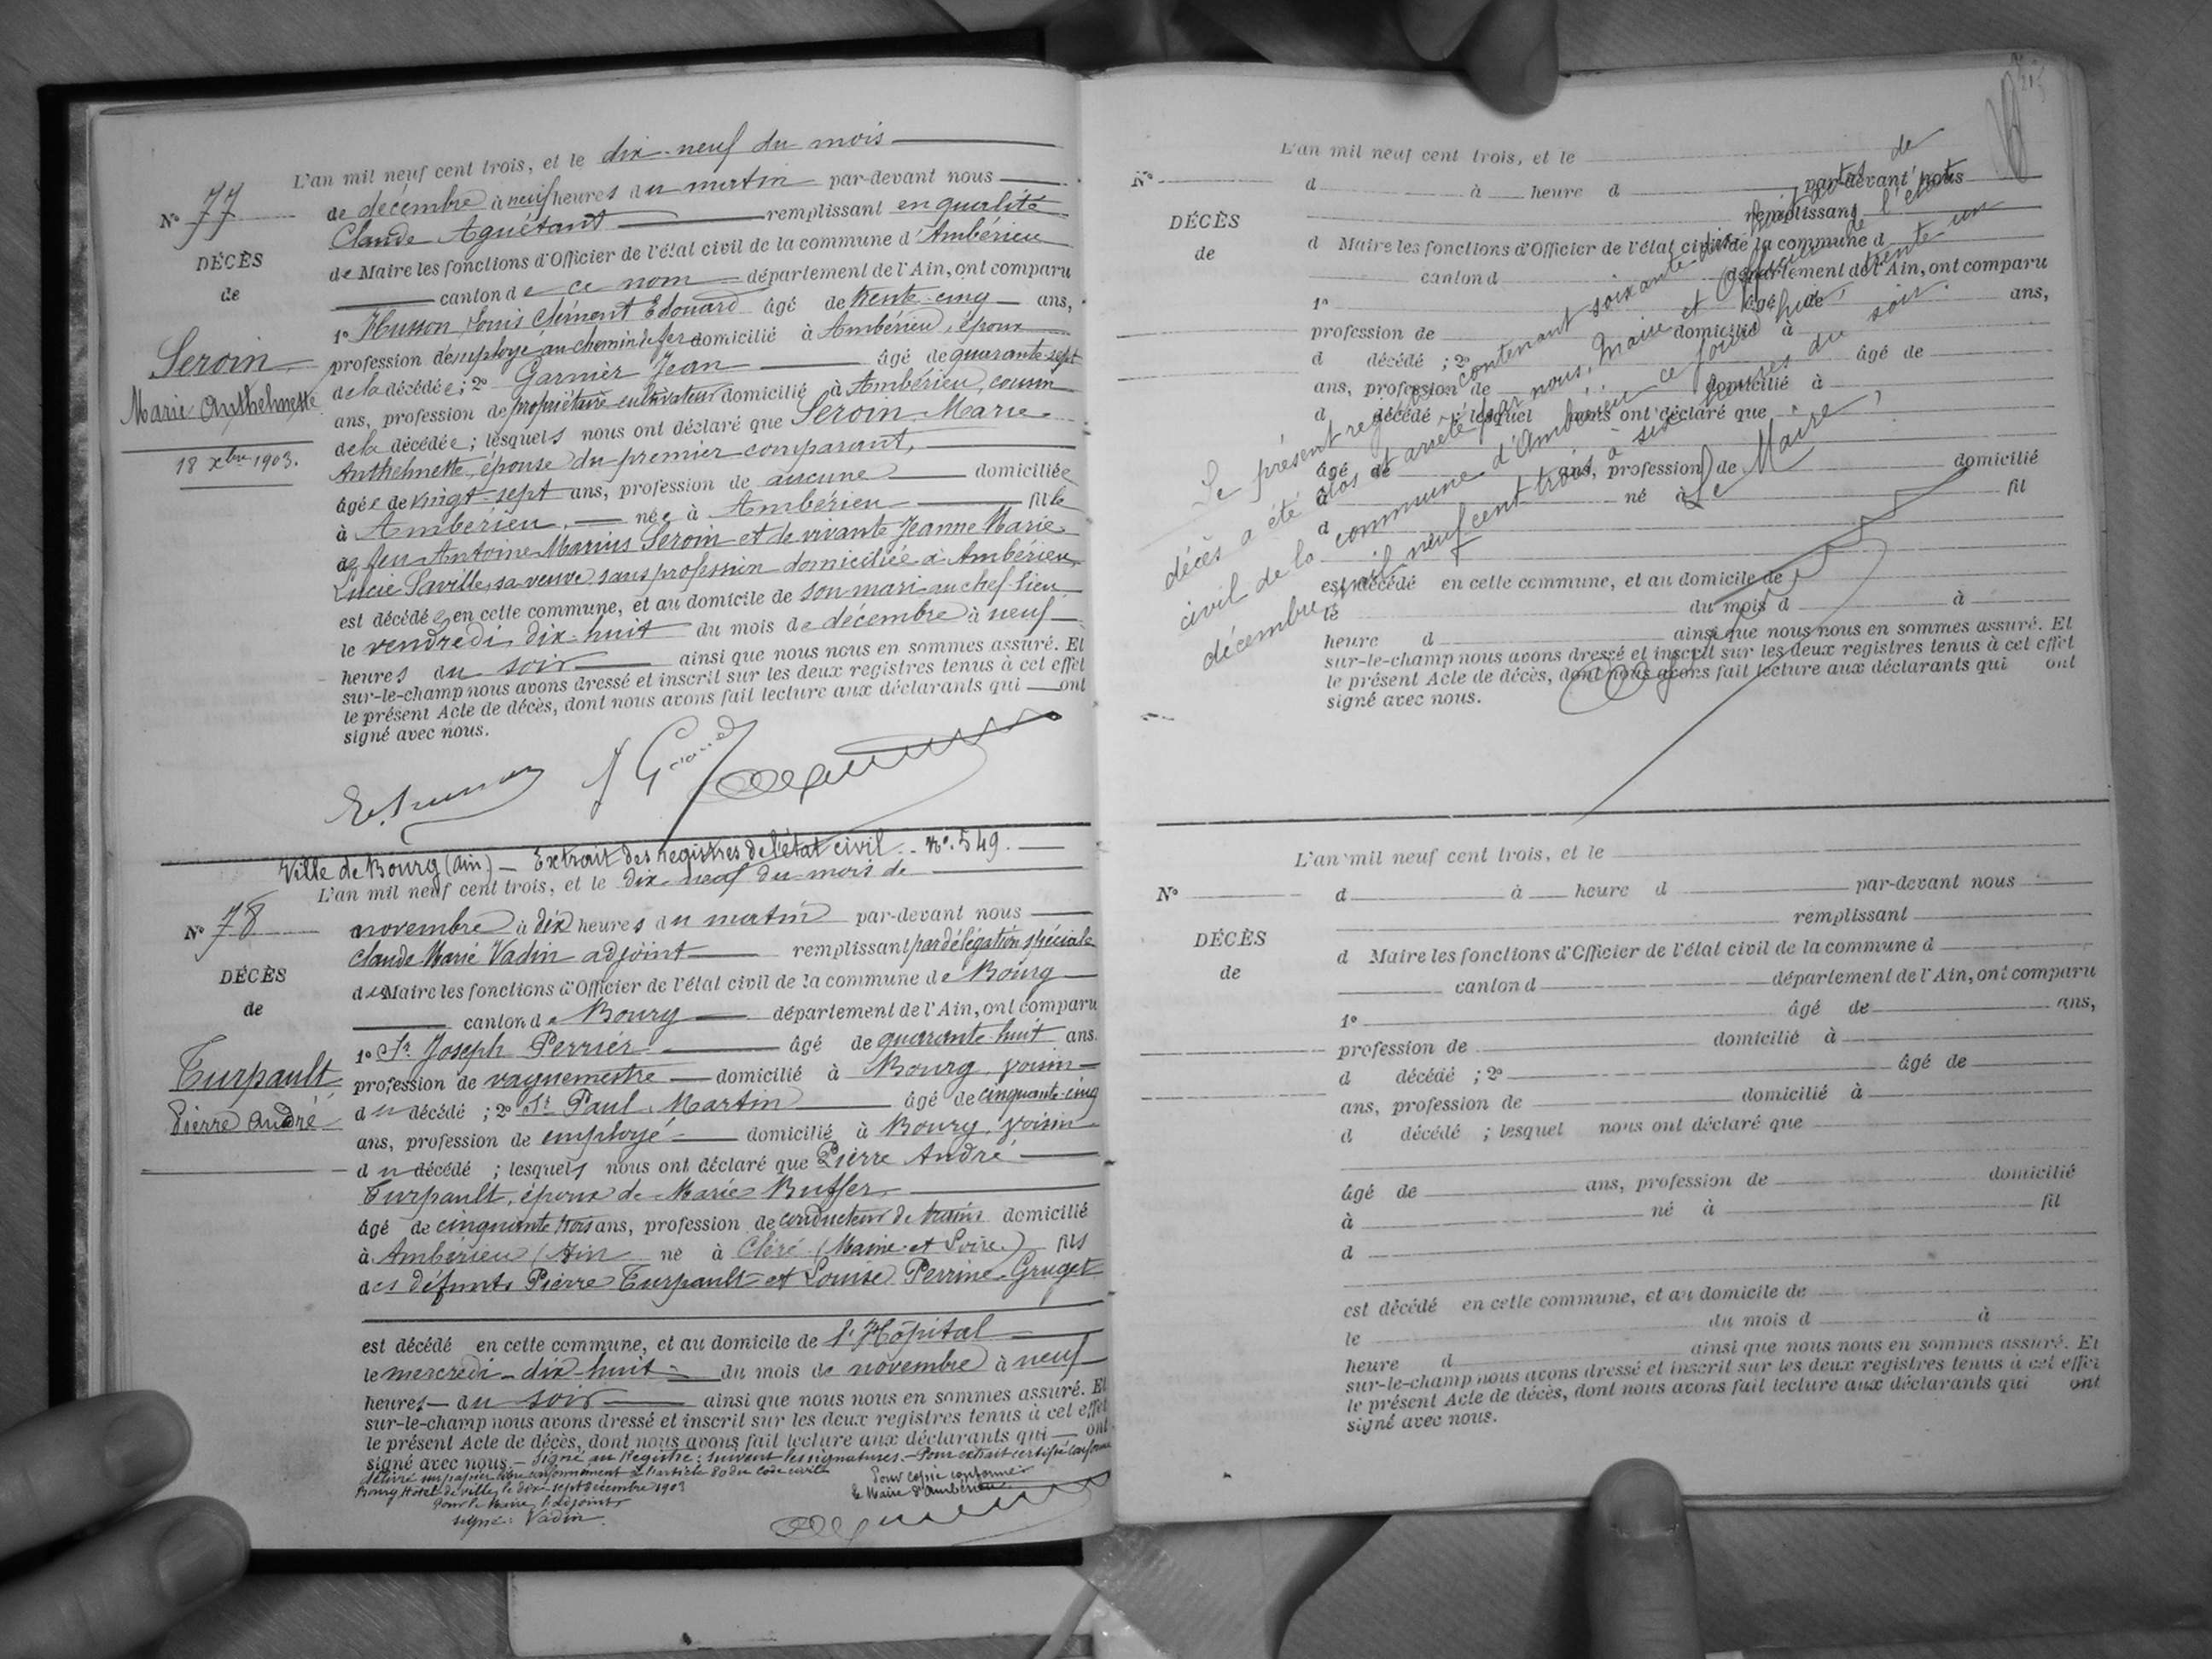 L'an mil neuf cent trois, et le dix-neuf du mois
N° 77
de décembre à neuf heures du matin par-devant nous
Claude Aguétant remplissant en qualité
DÉCÈS
de Maire les fonctions d'Officier de l'état civil de la commune d'Ambérieu
de
canton de ce nom département de l'Ain, ont comparu
1° Husson Louis Clément Edouard âgé de trente-cinq ans,
Seroin
profession d'employé au chemin de fer domicilié à Ambérieu, époux
Marie Anthelmette
de la décédée ; 2° Garnier Jean âgé de quarante-sept
ans, profession de propriétaire cultivateur domicilié à Ambérieu, cousin
de la décédée ; lesquels nous ont déclaré que Seroin Marie
18 xbre 1903.
Anthelmette, épouse du premier comparant,
âgée de vingt-sept ans, profession de aucune domiciliée
à Ambérieu, née à Ambérieu fille
de feu Antoine Marius Seroin et de vivante Jeanne Marie
Lucie Saville, sa veuve, sans profession domiciliée à Ambérieu
est décédée en cette commune, et au domicile de son mari au chef-lieu
le vendredi dix-huit du mois de décembre à neuf
heures du soir ainsi que nous nous en sommes assuré. Et
sur-le-champ nous avons dressé et inscrit sur les deux registres tenus à cet effet
le présent Acte de décès, dont nous avons fait lecture aux déclarants qui ont
signé avec nous.
Ville de Bourg (Ain) — Extrait des registres de l'état civil. — N° 549.
L'an mil neuf cent trois, et le dix-neuf du mois de
N° 78
novembre à dix heures du matin par-devant nous
Claude Marie Vadin adjoint remplissant par délégation spéciale
DÉCÈS
du Maire les fonctions d'Officier de l'état civil de la commune de Bourg
de
canton de Bourg département de l'Ain, ont comparu
1° Sr Joseph Perrier âgé de quarante-huit ans.
Turpault
profession de vaguemestre domicilié à Bourg, voisin
Pierre André
du décédé ; 2° Sr Paul Martin âgé de cinquante-cinq
ans, profession de employé domicilié à Bourg, voisin
du décédé ; lesquels nous ont déclaré que Pierre André
Turpault, époux de Marie Buffer
âgé de cinquante trois ans, profession de conducteur de trains domicilié
à Ambérieu (Ain né à Cléré (Maine-et-Loire) fils
des défunts Pierre Turpault et Louise Perrine Gruget
est décédé en cette commune, et au domicile de l'Hôpital
le mercredi dix-huit du mois de novembre à neuf
heures du soir ainsi que nous nous en sommes assuré. Et
sur-le-champ nous avons dressé et inscrit sur les deux registres tenus à cet effet
le présent Acte de décès, dont nous avons fait lecture aux déclarants qui ont
signé avec nous. — Signé au Registre : suivent les signatures. — Pour extrait certifié conforme
délivré sur papier libre conformément à l'article 80 du Code civil
Bourg, Hôtel de ville, le dix-sept décembre 1903
Pour le Maire, l'adjoint
signé : Vadin.
Pour copie conforme
Le Maire d'Ambérieu
L'an mil neuf cent trois, et le
N° d à heure d par-devant nous
remplissant
DÉCÈS
d Maire les fonctions d'Officier de l'état civil de la commune d
de
canton d département de l'Ain, ont comparu
1° âgé de ans,
profession de domicilié à
d décédé ; 2° âgé de
ans, profession de domicilié à
d décédé ; lesquel nous ont déclaré que
âgé de ans, profession de domicilié
à né à fil
d
est décédé en cette commune, et au domicile de
le du mois d à
heure d ainsi que nous nous en sommes assuré. Et
sur-le-champ nous avons dressé et inscrit sur les deux registres tenus à cet effet
le présent Acte de décès, dont nous avons fait lecture aux déclarants qui ont
signé avec nous.
Le présent registre contenant soixante-dix-huit actes de
décès a été clos et arrêté par nous, Maire et Officier de l'état
civil de la commune d'Ambérieu ce jourd'hui, trente-un
décembre mil neuf cent trois à six heures du soir.
Le Maire,
L'an mil neuf cent trois, et le
N° d à heure d par-devant nous
remplissant
DÉCÈS
d Maire les fonctions d'Officier de l'état civil de la commune d
de
canton d département de l'Ain, ont comparu
1° âgé de ans,
profession de domicilié à
d décédé ; 2° âgé de
ans, profession de domicilié à
d décédé ; lesquel nous ont déclaré que
âgé de ans, profession de domicilié
à né à fil
d
est décédé en cette commune, et au domicile de
le du mois d à
heure d ainsi que nous nous en sommes assuré. Et
sur-le-champ nous avons dressé et inscrit sur les deux registres tenus à cet effet
le présent Acte de décès, dont nous avons fait lecture aux déclarants qui ont
signé avec nous.